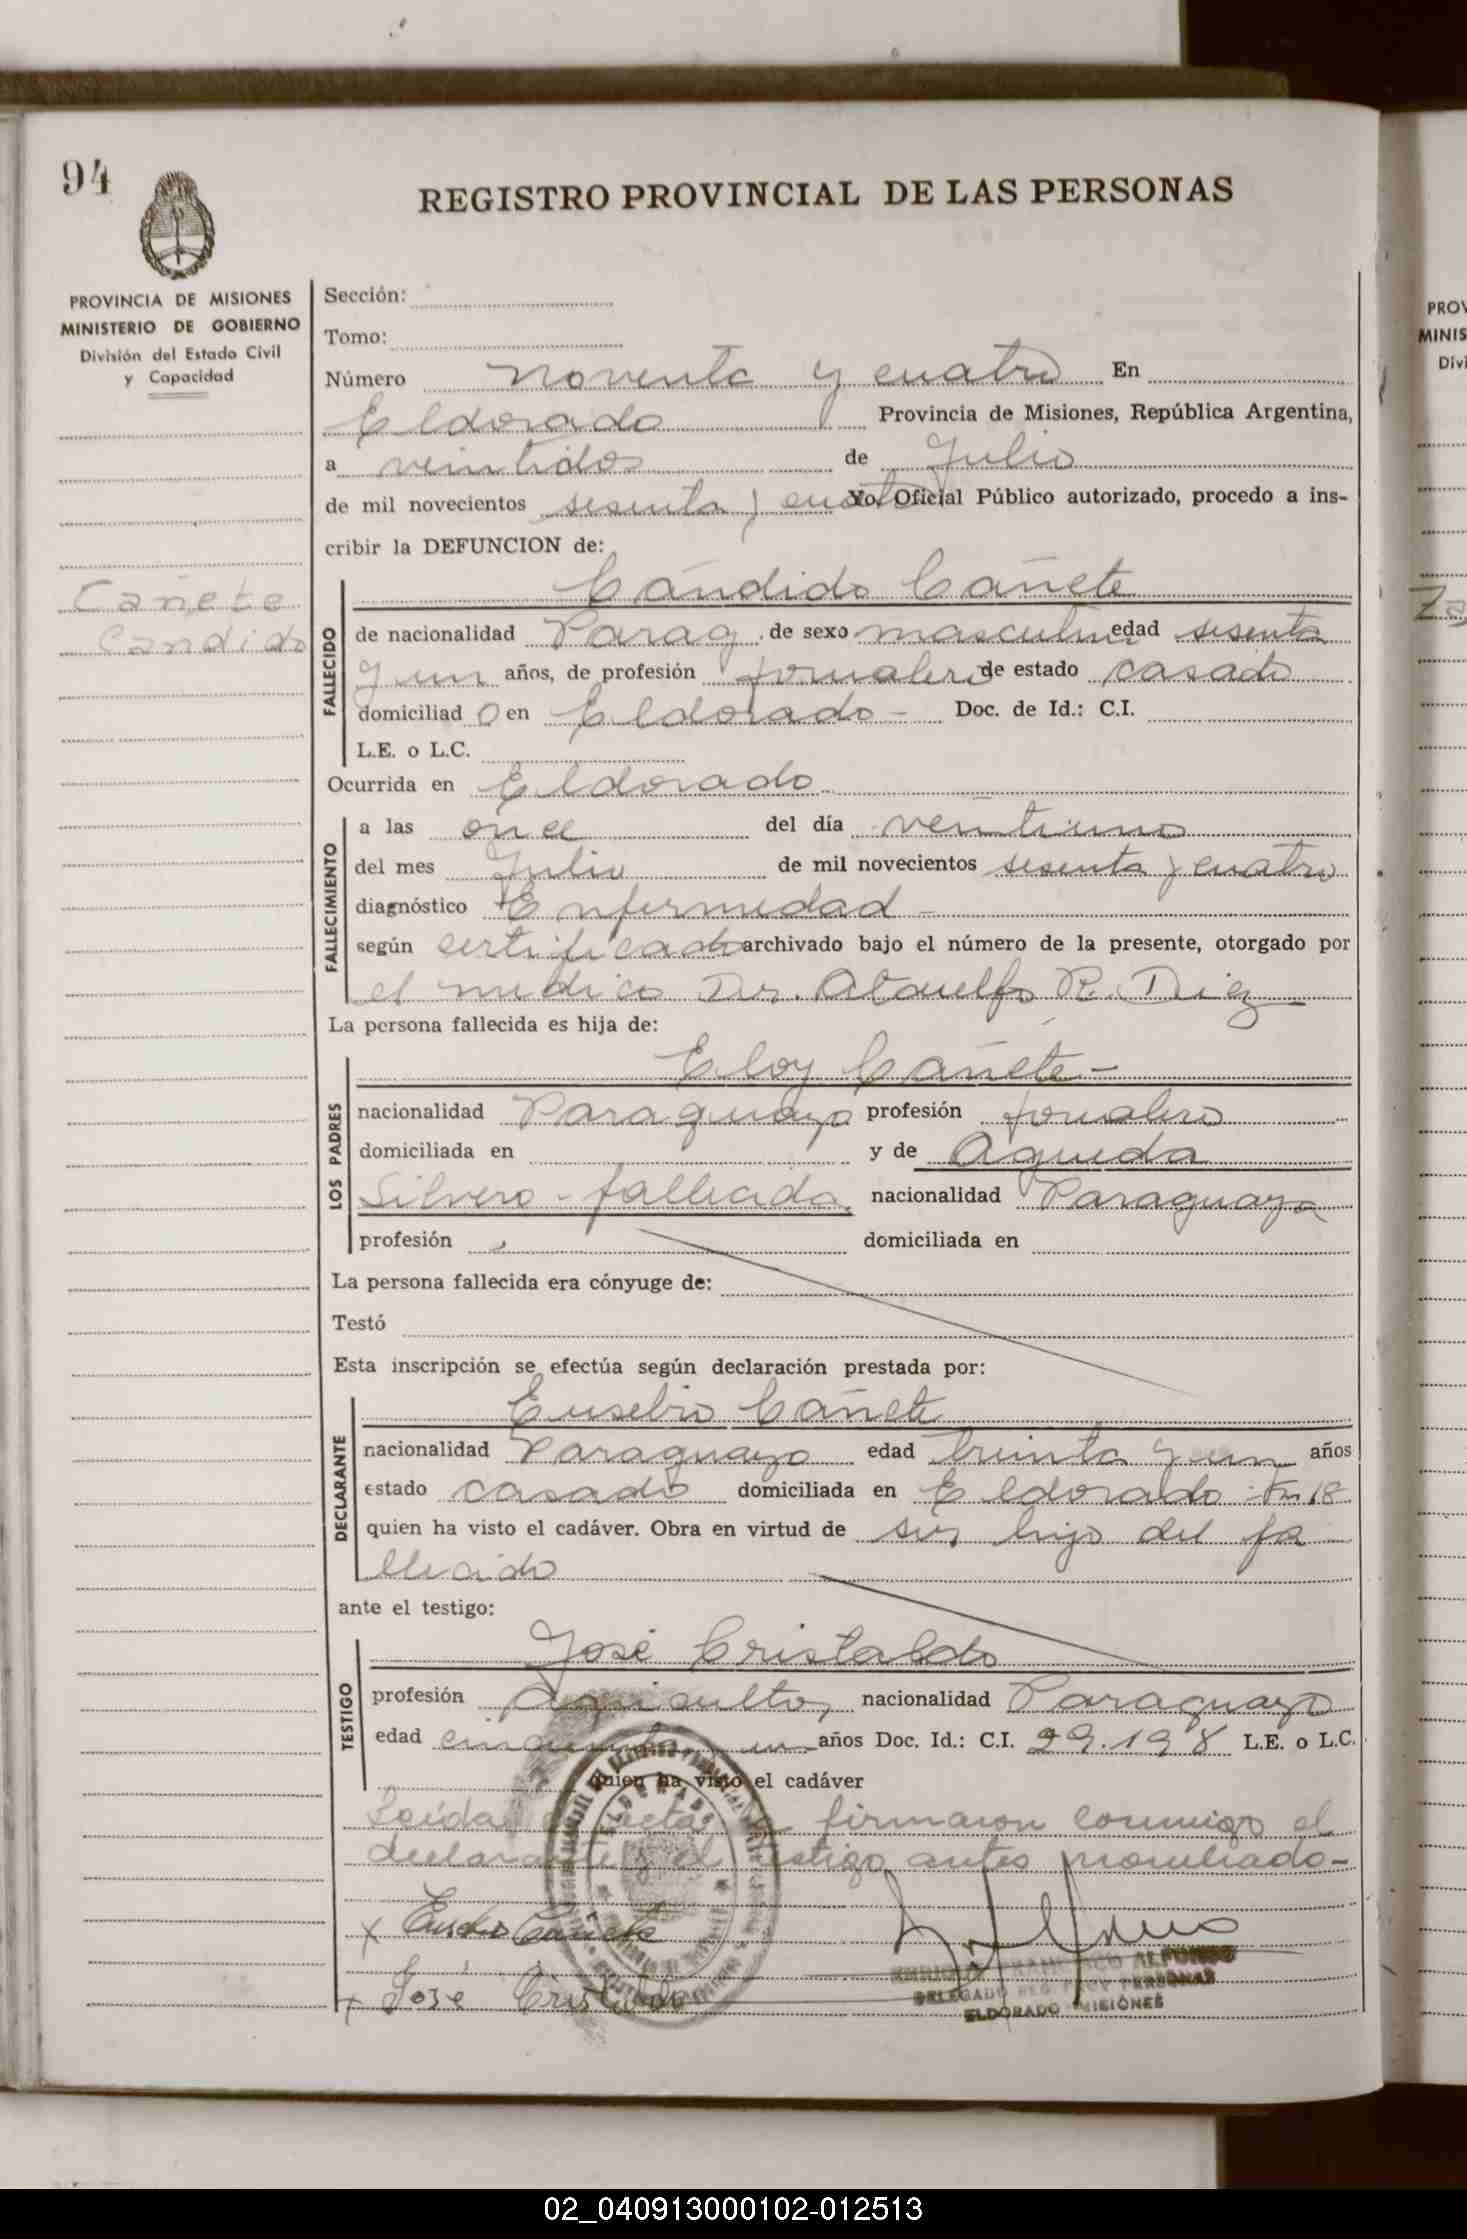 94
REGISTRO PROVINCIAL DE LAS PERSONAS
PROVINCIA DE MISIONES
MINISTERIO DE GOBIERNO
División del Estado Civil
y Capacidad
Cañete
Candido
Sección:
Tomo:
Número noventa y cuatro En
Eldorado Provincia de Misiones, República Argentina,
a veintidos de Julio
de mil novecientos sesenta y cuatro Yo, Oficial Público autorizado, procedo a ins-
cribir la DEFUNCION de:
FALLECIDO
Cándido Cañete
de nacionalidad Parag. de sexo masculin edad sesenta
y un años, de profesión jornalero de estado casado
domiciliad o en Eldorado - Doc. de Id.: C.I.
L.E. o L.C.
Ocurrida en Eldorado
FALLECIMIENTO
a las once del día veintiuno
del mes Julio de mil novecientos sesenta y cuatro
diagnóstico Enfermedad -
según certificado archivado bajo el número de la presente, otorgado por
el medico Dr. Ataulfo R. Diez
La persona fallecida es hija de:
LOS PADRES
Eloy Cañete -
nacionalidad Paraguayo profesión jornalero
domiciliada en y de Agueda
Silvero - fallecida nacionalidad Paraguaya
profesión domiciliada en
La persona fallecida era cónyuge de:
Testó
Esta inscripción se efectúa según declaración prestada por:
DECLARANTE
Eusebio Cañete
nacionalidad Paraguayo edad treinta y un años
estado casado domiciliada en Eldorado Km 18
quien ha visto el cadáver. Obra en virtud de ser hijo del fa
llecido
ante el testigo:
TESTIGO
José Cristaldo
profesión agricultor nacionalidad Paraguayo
edad cincuenta y un años Doc. Id.: C.I. 29.198 L.E. o L.C.
quien ha visto el cadáver
Leída el acta la firmaron conmigo el
declarante y el testigo antes nombrado -
x Eusebio Cañete
x José Cristaldo
FRANCISCO ALFONSO
DELEGADO REG. PROV. PERSONAS
ELDORADO MISIONES
ELDORADO
PROV
MINIS
Divi
Za
02_040913000102-012513